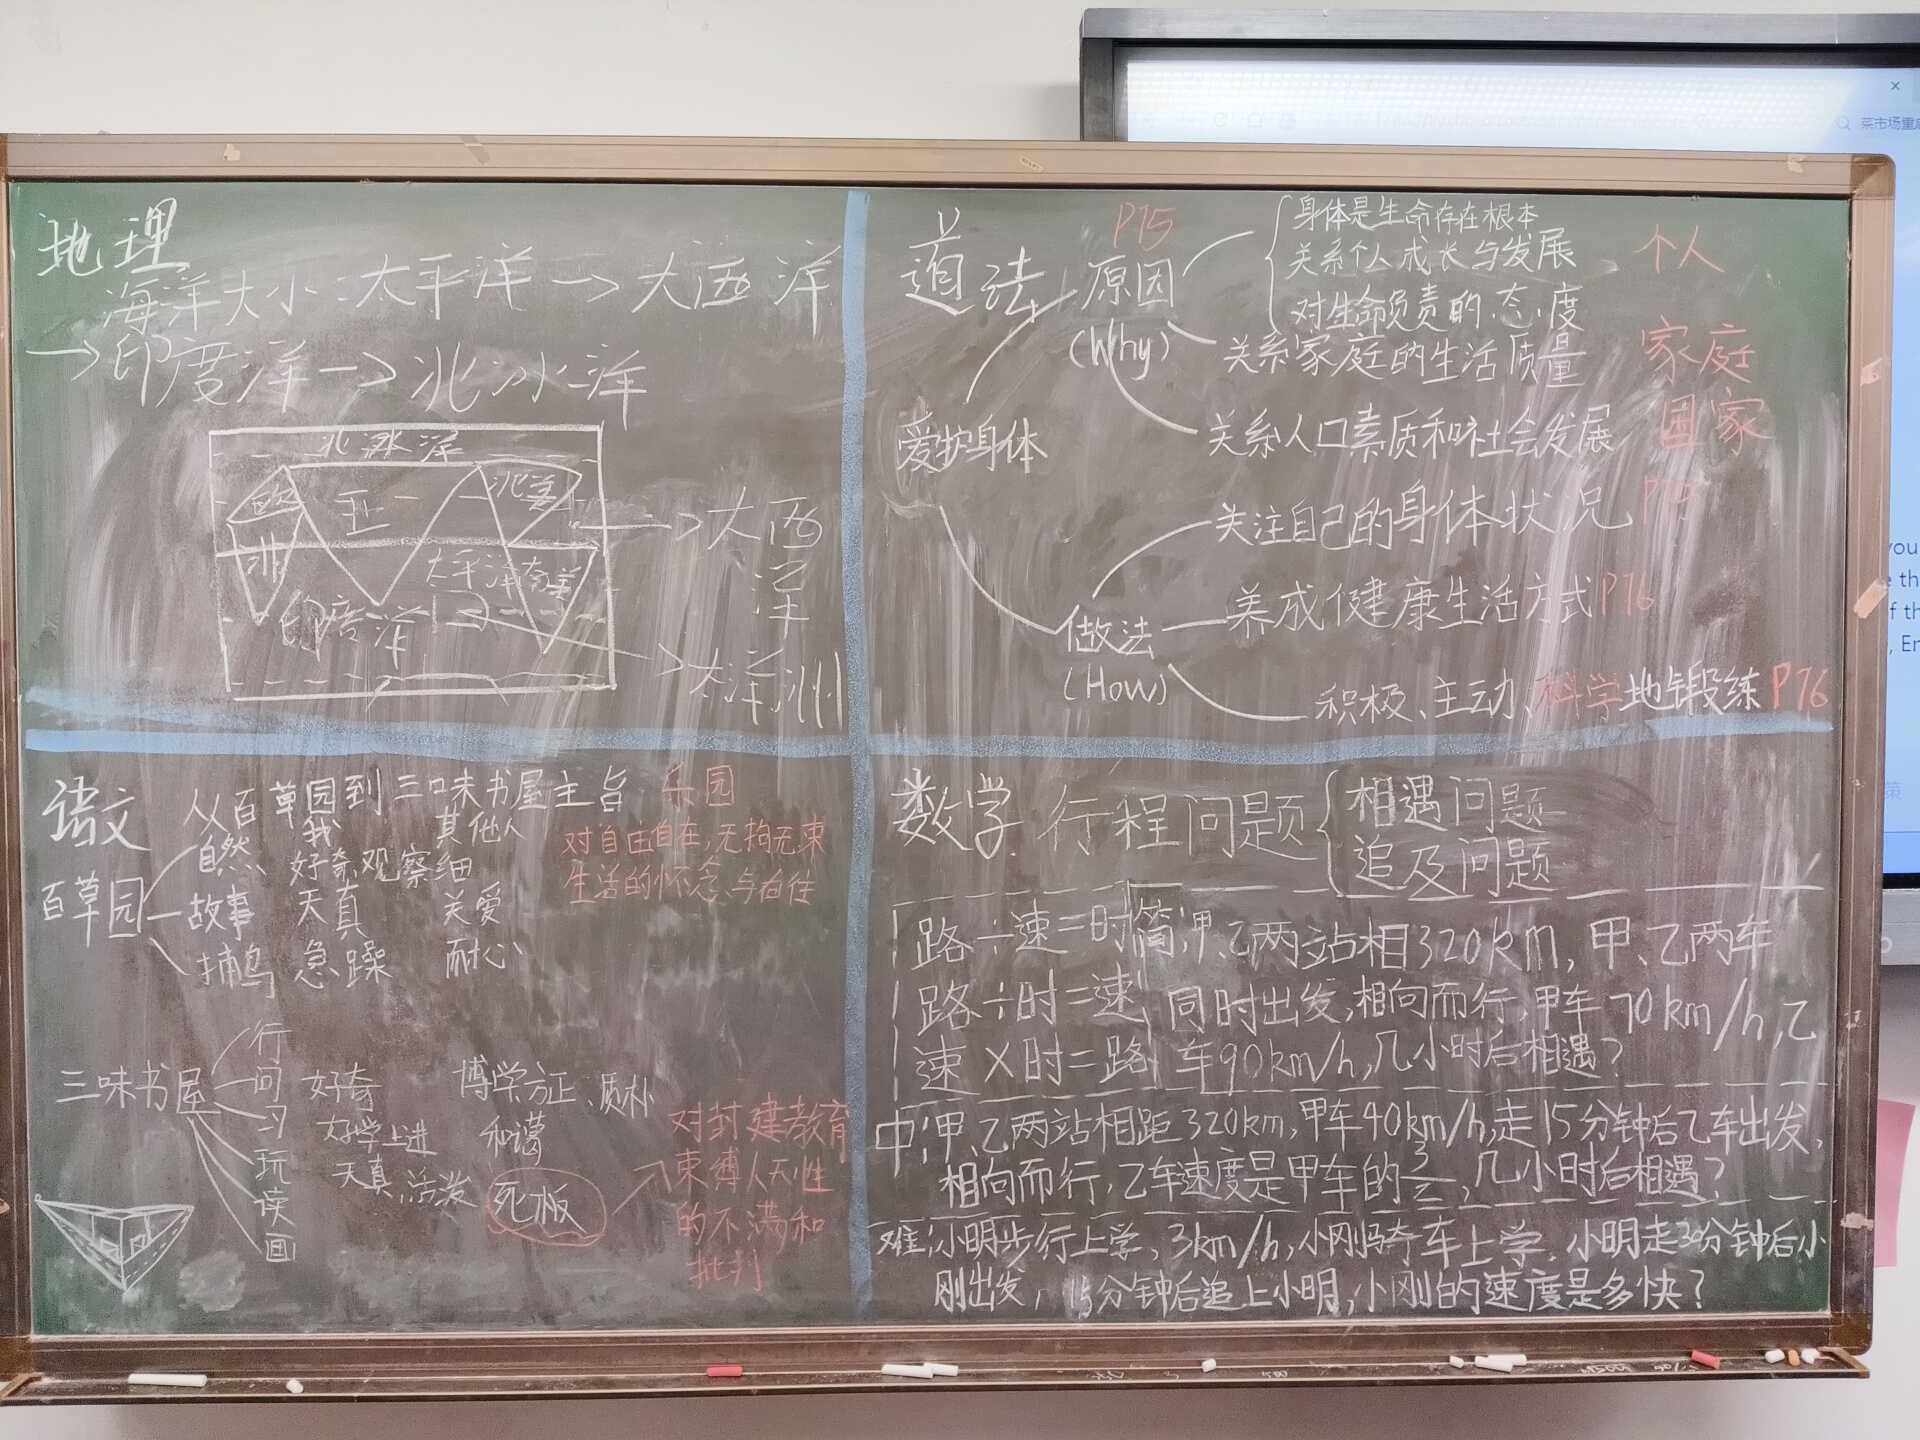 地理
海洋大小:太平洋→大西洋
→印度洋→北冰洋
北冰洋
欧
亚
北美
非
太平洋
南美
印度洋
→大西洋
→大洋洲
道法
爱护身体
原因
(Why)
P75
身体是生命存在根本
关系个人成长与发展
对生命负责的态度
个人
关系家庭的生活质量
家庭
关系人口素质和社会发展
国家
做法
(How)
关注自己的身体状况
养成健康生活方式P76
积极、主动、科学地锻练P76
语文
从百草园到三味书屋主旨
乐园
我
其他人
百草园
自然、
好奇观察细
故事
天真
关爱
捕鸟
急躁
耐心
对自由自在,无拘无束
生活的怀念与向往
三味书屋
行
问
习
玩
读
画
好奇
好学上进
天真、活泼
博学方正、质朴
和蔼
死板
对封建教育
束缚人天性
的不满和
批判
数学
行程问题
相遇问题
追及问题
路÷速=时
路÷时=速
速×时=路
简:甲、乙两站相320km,甲、乙两车
同时出发,相向而行,甲车70km/h,乙
车90km/h,几小时后相遇?
中:甲、乙两站相距320km,甲车40km/h,走15分钟后乙车出发,
相向而行,乙车速度是甲车的3/2,几小时后相遇?
难:小明步行上学,3km/h,小刚骑车上学,小明走30分钟后小
刚出发,15分钟后追上小明,小刚的速度是多快?
菜市场重
you